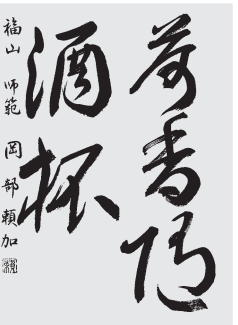 荷香随
酒杯
福山 師範 岡部頼加